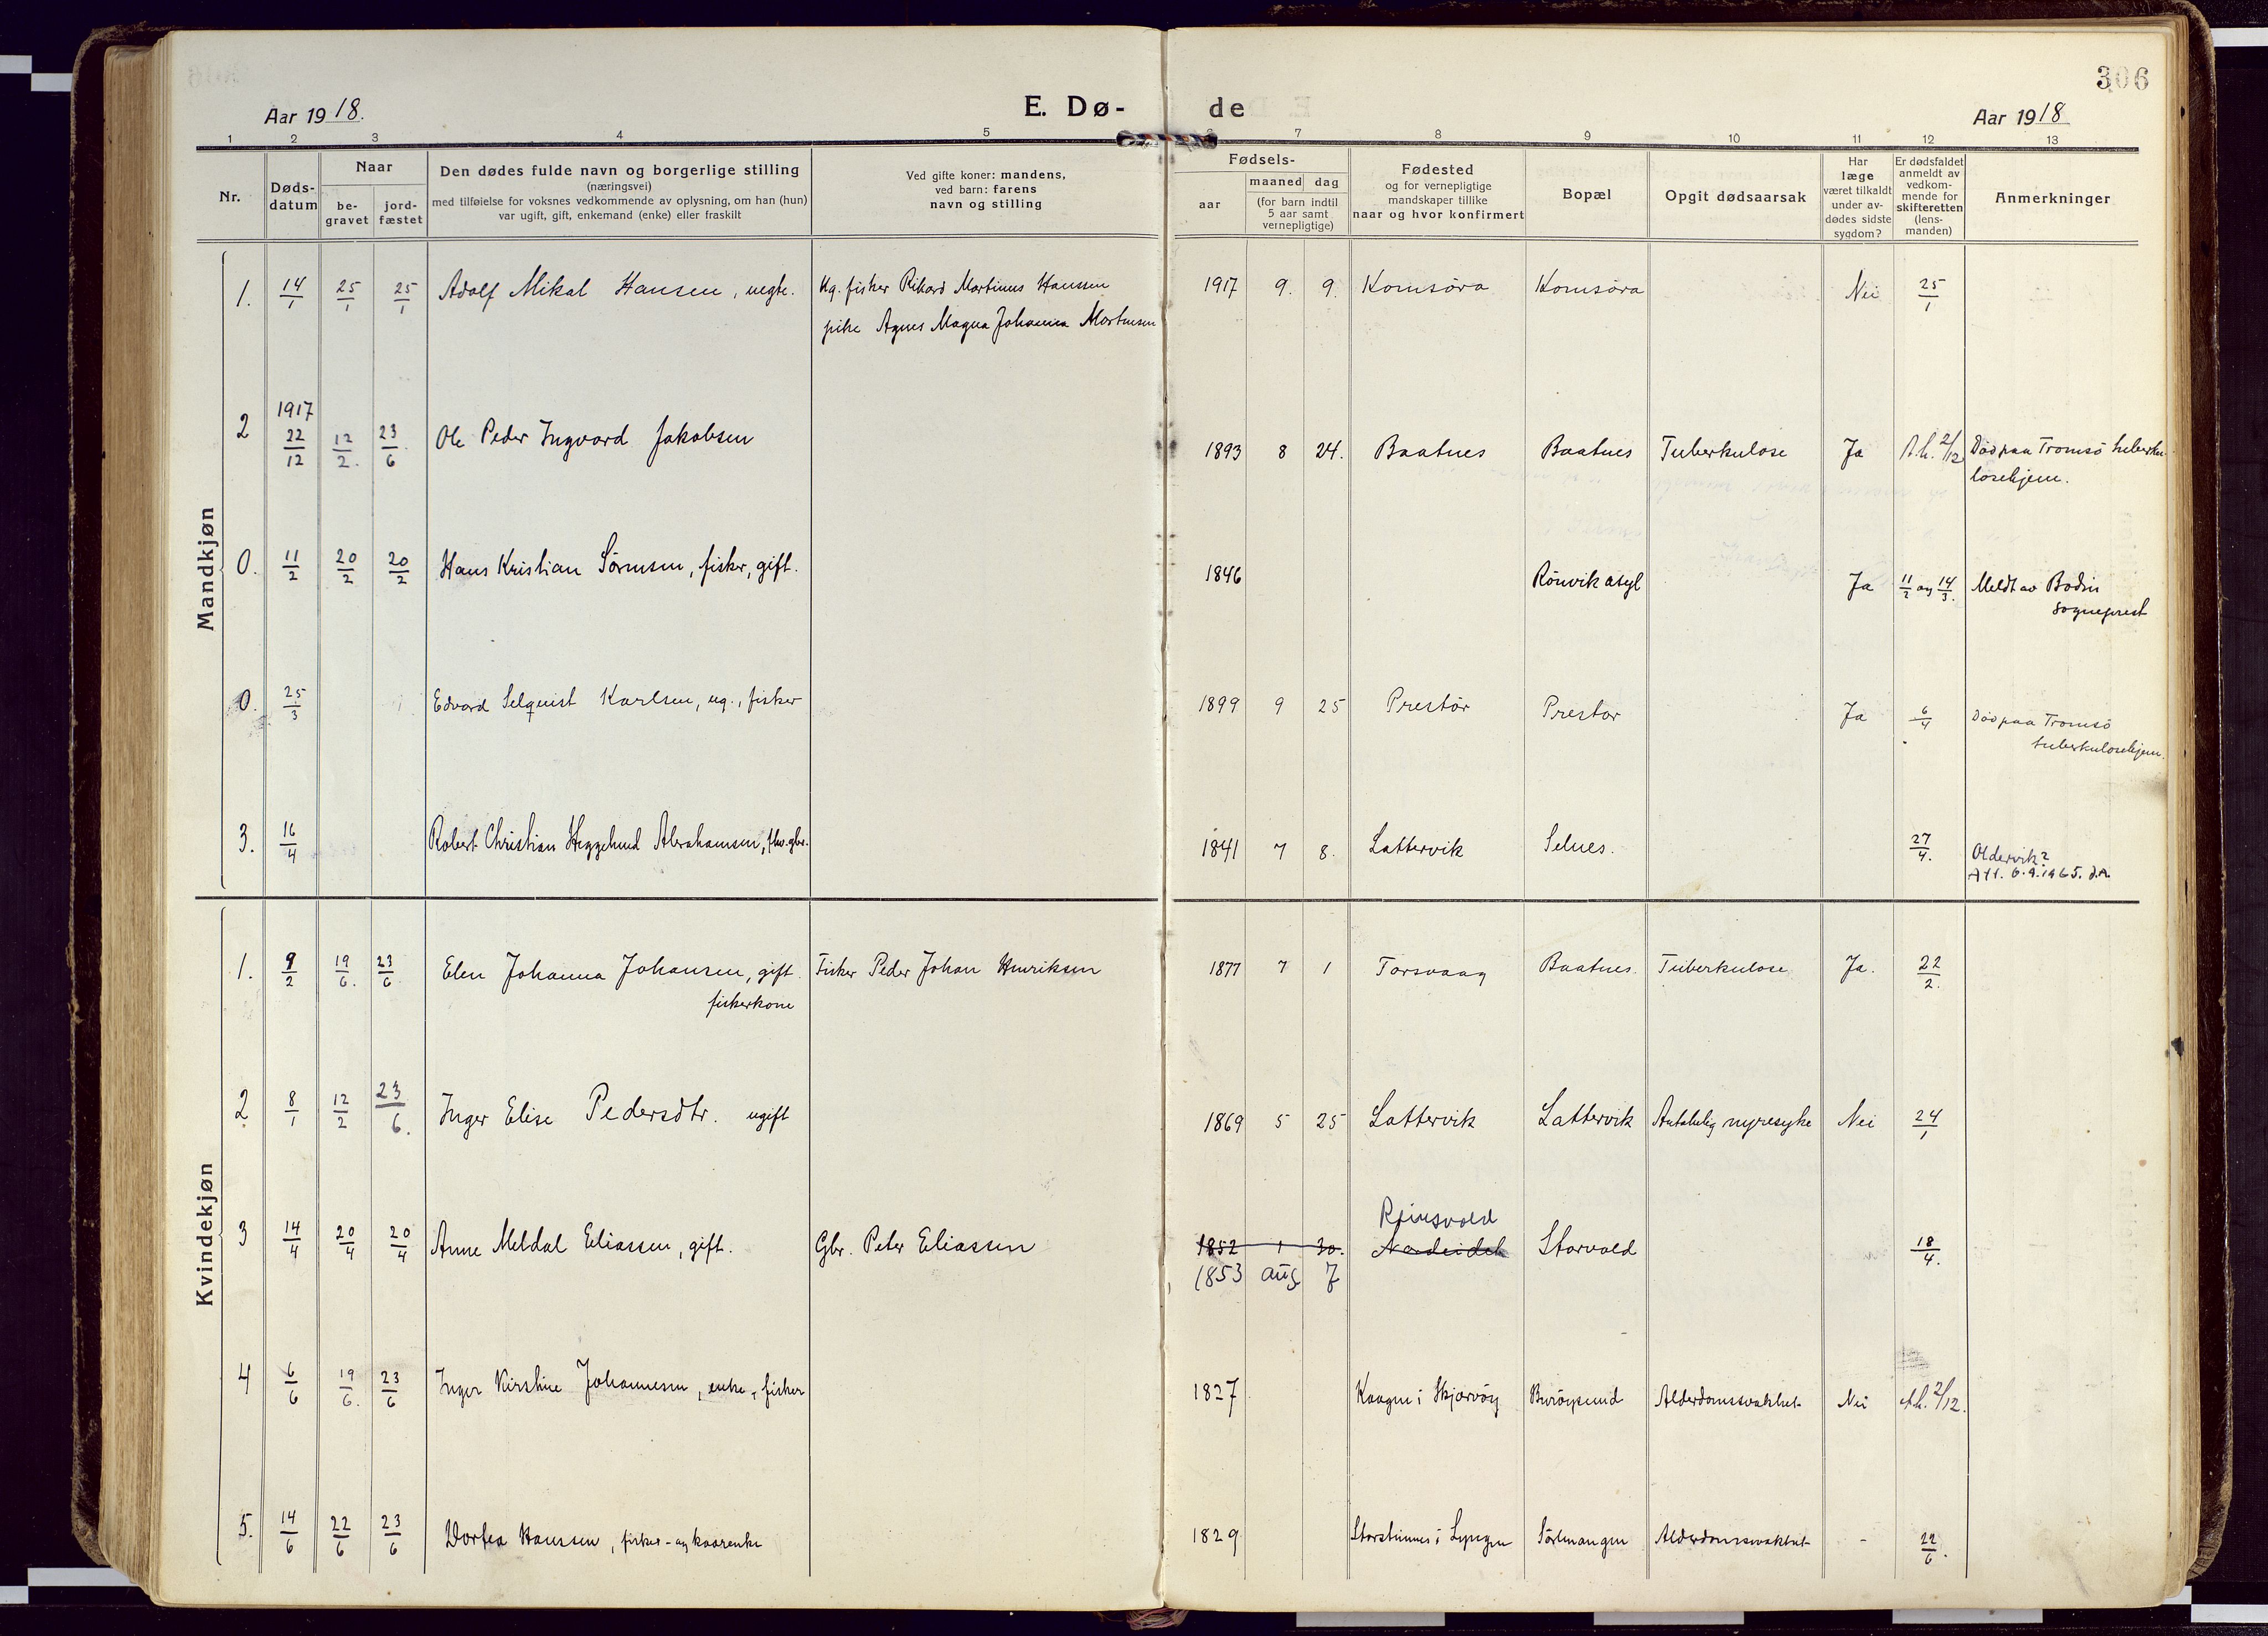 306
Aar 1918.
E. Dø-
de
Aar 1918
1 2 3 4 5 6 7 8 9 10 11 12 13
Nr.
Døds-
datum
Naar
be-
gravet
jord-
fæstet
Den dødes fulde navn og borgerlige stilling
(næringsvei)
med tilføielse for voksnes vedkommende av oplysning, om han (hun)
var ugift, gift, enkemand (enke) eller fraskilt
Ved gifte koner: mandens,
ved barn: farens
navn og stilling
Fødsels-
aar
maaned dag
(for barn indtil
5 aar samt
vernepligtige)
Fødested
og for vernepligtige
mandskaper tillike
naar og hvor konfirmert
Bopæl
Opgit dødsaarsak
Har
læge
været tilkaldt
under av-
dødes sidste
sygdom?
Er dødsfaldet
anmeldt av
vedkom-
mende for
skifteretten
(lens-
manden)
Anmerkninger
Mandkjøn
1. 14/1 25/1 25/1 Adolf Mikal Hansen, uegte. Ug. fisker Rikard Martinus Hanssen 1917 9. 9. Komsöra Komsöra Nei 25/1
pike Agnes Magna Johanna Mortensen
1917
2 22/12 12/2. 23/6. Ole Peder Ingvard Jakobsen 1893 8 24. Baatnes Baatnes Tuberkulose Ja A.h. 2/12 Död paa Tromsö tuberku-
losehjem.
0. 11/2 20/2 20/2 Hans Kristian Sörensen, fisker, gift. 1846 Rönvik asyl Ja 11/2 og 14/3. Meldt av Bodin
sogneprest
0. 25/3 Edvard Selquist Karlsen, ug., fisker 1899 9 25 Prestör Prestör Ja 6/4 Död paa Tromsö
tuberkulosehjem.
3. 16/4 Robert Christian Heggelund Abrahamsen, fhv. gbr. 1841 7 8. Lattervik Selnes. 27/4. Oldervik?
Att. 6.9.1965. J.A.
Kvindekjøn
1. 9/2 19/6. 23/6 Elen Johanna Johansen, gift. Fisker Peder Johan Henriksen 1877 7 1 Torsvaag Baatnes. Tuberkulose Ja. 22/2.
fiskerkone
2. 8/1 12/2 23/6. Inger Elise Pedersdtr. ugift 1869 5 25 Lattervik Lattervik Antakelig nyresyke Nei 24/1
Reinsvold
3 14/4 20/4 20/4 Anne Meldal Eliassen, gift. Gbr. Peter Eliassen 1852 1 30. Nordeidet Storvold 18/4.
1853 aug 7
4 6/6 19/6. 23/6 Inger Kirstine Johannesen, enke, fisker 1827 Kaagen i Skjervöy Buröysund Alderdomssvakhet Nei A.h. 2/12.
5. 14/6 22/6 23/6 Dortea Hanssen, fisker- og kaarenke 1829 Storsteinnes i Lyngen Sörlenangen Alderdomssvakhet - 22/6.